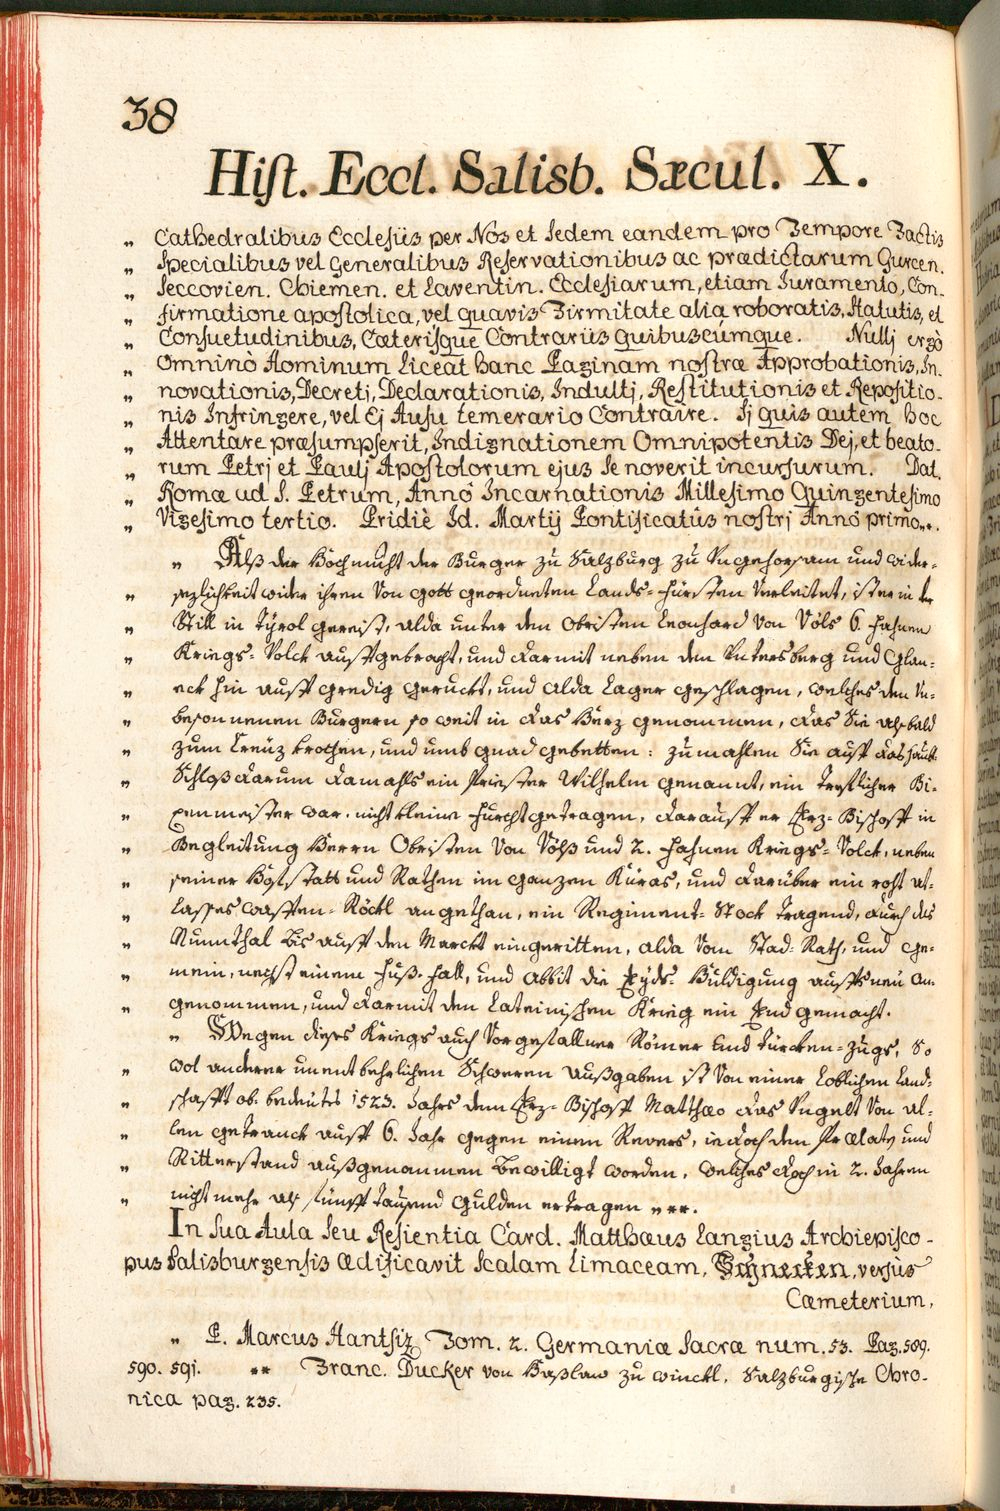 38
Hist. Eccl. Salisb. Sæcul. X.
„ Cathedralibus Ecclesiis per Nos et Sedem eandem pro Tempore Factis
„ Specialibus vel Generalibus Reservationibus ac prædictarum Gurcen.
„ Seccovien. Chiemen. et Laventin. Ecclesiarum, etiam Juramento, Con-
„ firmatione apostolica, vel quavis Firmitate alia roboratis, Statutis, et
„ Consuetudinibus, Cæterisque Contrariis Quibuscúmque. Nullj ergò
„ Omninò Hominum Liceat hanc Paginam nostræ Approbationis, In-
„ novationis, Decretj, Declarationis, Indultj, Restitutionis et Repositio-
„ nis Infringere, vel Ej Ausu temerario Contraire. Sj quis autem hoc
„ Attentare præsumpserit, Indignationem Omnipotentis Dej, et beato-
„ rum Petrj et Paulj Apostolorum ejus Se noverit incursurum. Dat.
„ Romæ ad S. Petrum, Annó Incarnationis Millesimo Quingentesimo
„ Vigesimo tertio. Pridiè Id. Martij Pontificatûs nostrj Annó primo„.
„ Alß der Hochmuht der Burger zu Salzburg zu Ungehorsam und wider-
„ sezlichkeit wider ihren Von Gott geordneten Lands-Fürsten Verleitet, ist er in der
„ Still in Tÿrol gereist, alda unter dem Obristen Leonhard Von Völs 6. Fahnen
„ Kriegs-Volck aufgebracht, und darmit neben dem Untersberg und Glan-
„ eck hin auff Gredig geruckt, und alda Lager geschlagen, welches den Un-
„ besonnenen Burgern so weit in das Herz genommen, das Sie alsbald
„ zum Creüz krochen, und umb gnad gebetten: zumahlen Sie auff das Haubt-
„ Schloß darum damahls ein Priester Wilhelm genannt, ein trefflicher Bi-
„ xenmeister war, nicht kleine Furcht getragen, darauff er Erz-Bischoff in
„ Begleitung Herrn Obristen Von Völß und 2. Fahnen Kriegs-Volck, neben
„ seiner Hofstatt und Rathen im ganzen Küras, und darüber ein roht at-
„ lasses Waffen-Röckl angethan, ein Regiment-Stock tragend, durch das
„ Nunnthal bis auff den Marckt eingeritten, alda Vom Stad-Rath, und Ge-
„ mein, nechst einem Fuß-Fall, und Abbit die Eyds-Huldigung auffs neü an-
„ genommen, und darmit dem Lateinischen Krieg ein End gemacht.
„ Wegen dieses Kriegs auch Vorgefallner Römer und Türcken-Zugs, So
„ wol anderer unentbehrlichen Schweren Außgaben ist Von einer Loblichen Land-
„ schafft ob. bedeütes 1523. Jahrs dem Erz-Bischoff Matthæo das Ungelt Von al-
„ len Getranck auff 6. Jahr gegen einen Revers, iedoch den Prælaten und
„ Ritterstand außgenommen bewilligt worden, welches doch in 2. Jahren
„ nicht mehr als fünff tausend Gulden ertragen „**.
In Sua Aula Seu Resientia Card. Matthæus Langius Archiepisco-
pus Salisburgensis Ædificavit Scalam Limaceam, Schnecken, versus
Cæmeterium,
„ P. Marcus Hantsiz Tom. 2. Germaniæ Sacræ num. 53. Pag. 589.
590. 591. ** Franc. Ducker von Haßlaw zu Winckl, Salzburgische Chro-
nica pag. 235.